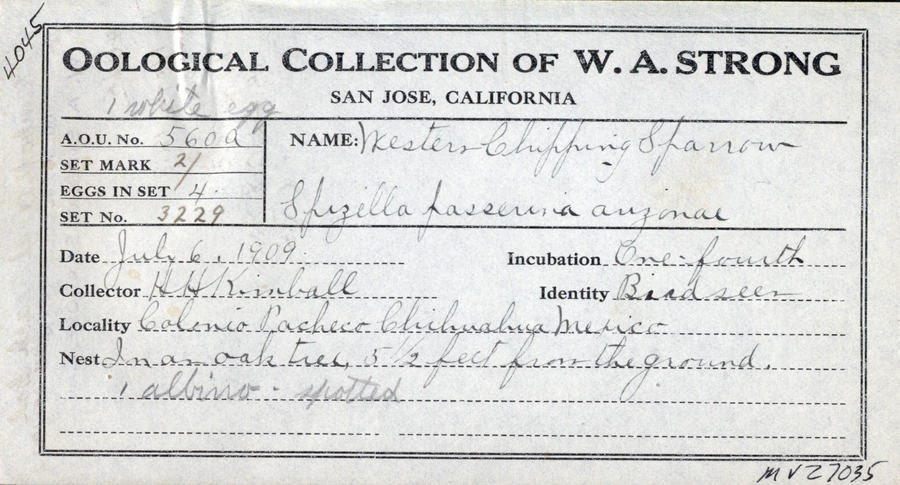 4045
OOLOGICAL COLLECTION OF W. A. STRONG
SAN JOSE, CALIFORNIA
1 white egg
A.O.U. No. 560a
SET MARK 2/
EGGS IN SET 4
SET No. 3229
NAME: Western Chipping Sparrow
Spizella passerina arizonae
Date July 6, 1909
Incubation One-fourth
Collector H H Kimball
Identity Bird seen
Locality Colonio Pacheco Chihuahua Mexico
Nest In an oak tree, 5 1/2 feet from the ground.
1 albino - spotted
MVZ 7035